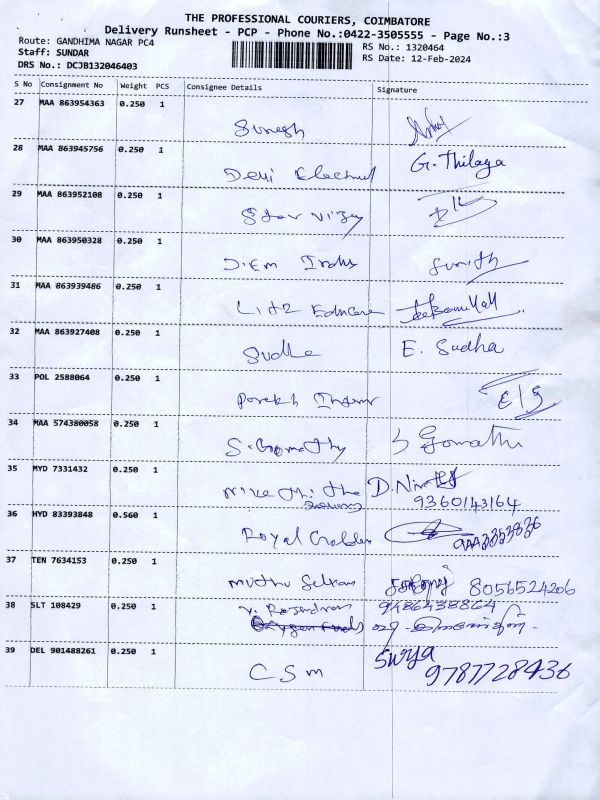 THE PROFESSIONAL COURIERS, COIMBATORE
Delivery Runsheet - PCP - Phone No.:0422-3505555 - Page No.:3
Route: GANDHIMA NAGAR PC4
RS No.: 1320464
Staff: SUNDAR
RS Date: 12-Feb-2024
DRS No.: DCJB132046403
S No Consignment No Weight PCS Consignee Details Signature
27 MAA 863954363 0.250 1
Suresh
28 MAA 863945756 0.250 1
G. Thilaga
Devi
29 MAA 863952108 0.250 1
Star Vijay
30 MAA 863950328 0.250 1
31 MAA 863939486 0.250 1
32 MAA 863927408 0.250 1
Sudha E. Sudha
33 POL 2588064 0.250 1
34 MAA 574380058 0.250 1
S. Gomathy S Gomathi
35 MYD 7331432 0.250 1
9360143164
36 HYD 83393848 0.560 1
Royal
37 TEN 7634153 0.250 1
Muthu Selvam 8056524206
38 SLT 108429 0.250 1
V. Rajendran 9486438864
39 DEL 901488261 0.250 1
Surya
CSM 9787728436